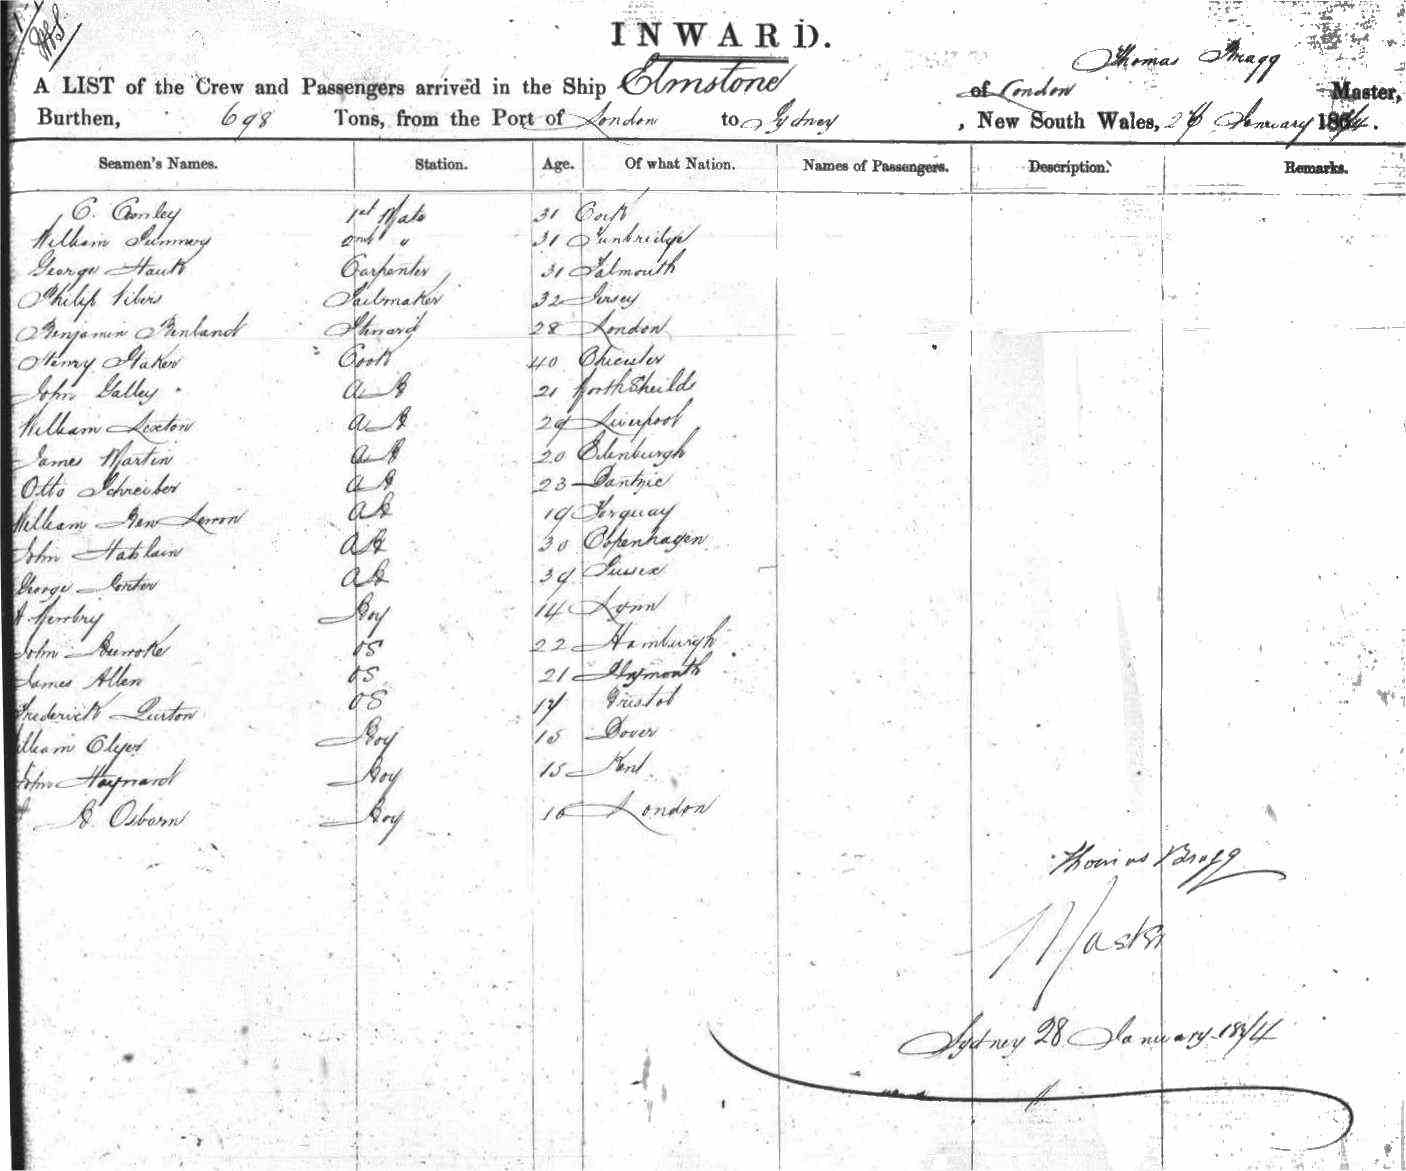 INWARD.
Thomas Bragg
A LIST of the Crew and Passengers arrived in the Ship Elmstone of London Master,
Burthen, 698 Tons, from the Port of London to Sydney, New South Wales, January 1874.
Seamen's Names. Station. Age. Of what Nation. Names of Passengers. Description. Remarks.
1st Mate 31 Cork
William 2nd " 31 Tunbridge
George Carpenter 31 Falmouth
Philip Sailmaker 32 Jersey
Benjamin Benland Steward 28 London
Henry Staker Cook 40 Chicester
John Galley AB 21 North Sheilds
William Sexton AB 29 Liverpool
James Martin AB 20 Edenburgh
Otto Schreiber AB 23 Dantzic
William Ben Lemon AB 19 Torquay
John AB 30 Copenhagen
George AB 39 Sussex
Boy 14 Lynn
John OS 22 Hamburgh
James Allen OS 21 Plymouth
Frederick OS 17 Bristol
Boy 15 Dover
John Haynard Boy 15 Kent
B. Osborn Boy 16 London
Thomas Bragg
Master
Sydney 28 January 1874